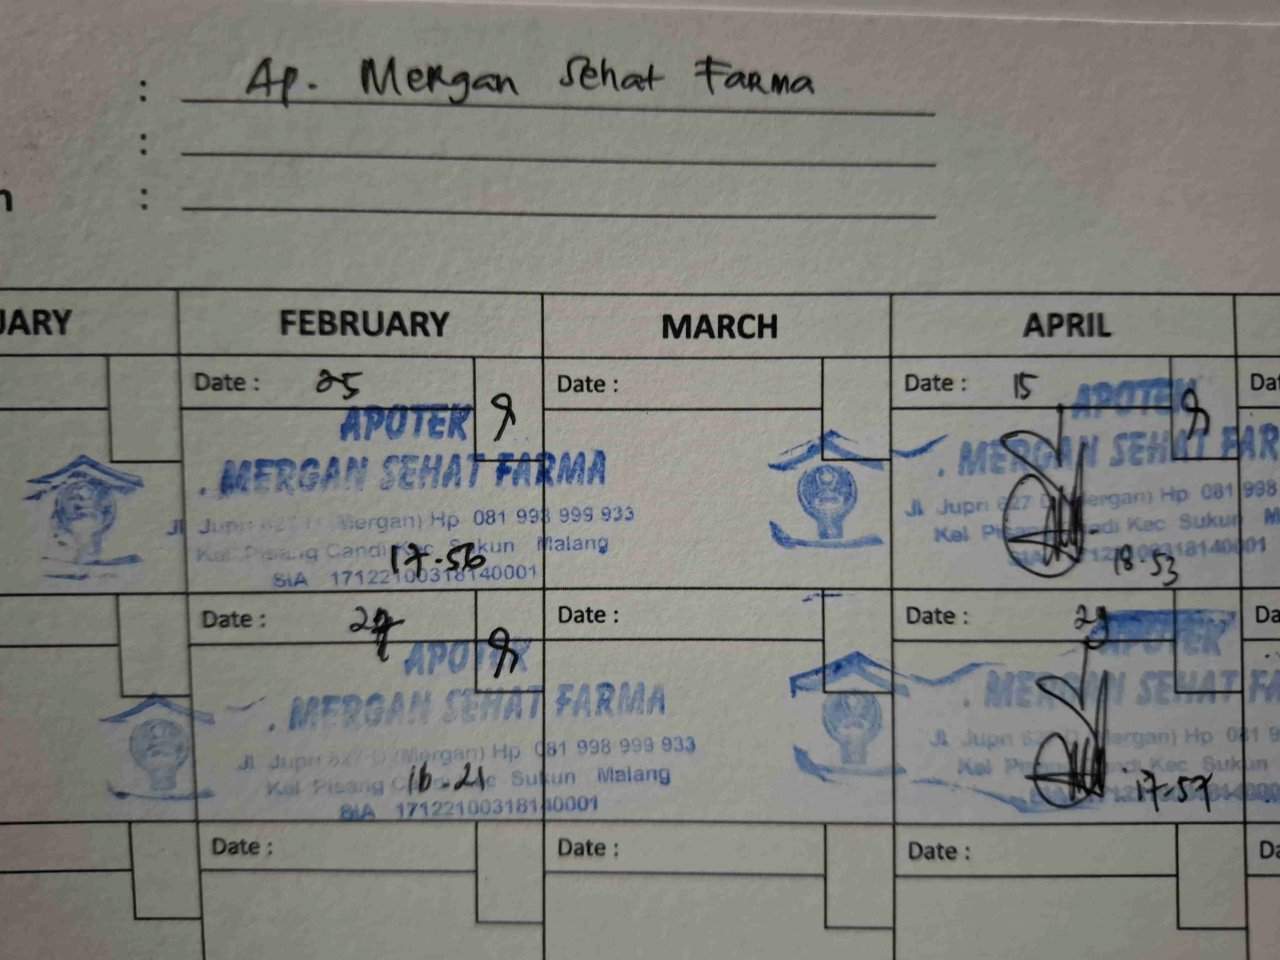 : Ap. Mergan Sehat Farma
:
n :
UARY FEBRUARY MARCH APRIL
Date : 25 Date : Date : 15 Dat
APOTEK
MERGAN SEHAT FARMA
Jl Jupri 627 D (Mergan) Hp 081 998 999 933
Kel Pisang Candi Kec Sukun Malang
SIA 17122100318140001
17-56
APOTEK
MERGAN SEHAT FAR
Jl Jupri 627 D (Mergan) Hp 081 998
Kel Pisang Candi Kec Sukun M
18-53
Date : Date : Date : 29 Da
APOTEK
MERGAN SEHAT FARMA
Jl Jupri 627 D (Mergan) Hp 081 998 999 933
Kel Pisang Candi Kec Sukun Malang
SIA 17122100318140001
16-21
APOTEK
MERGAN SEHAT FA
Jl Jupri (Mergan) Hp 081 9
Kel Candi Kec Sukun
17-57
Date : Date : Date : Da